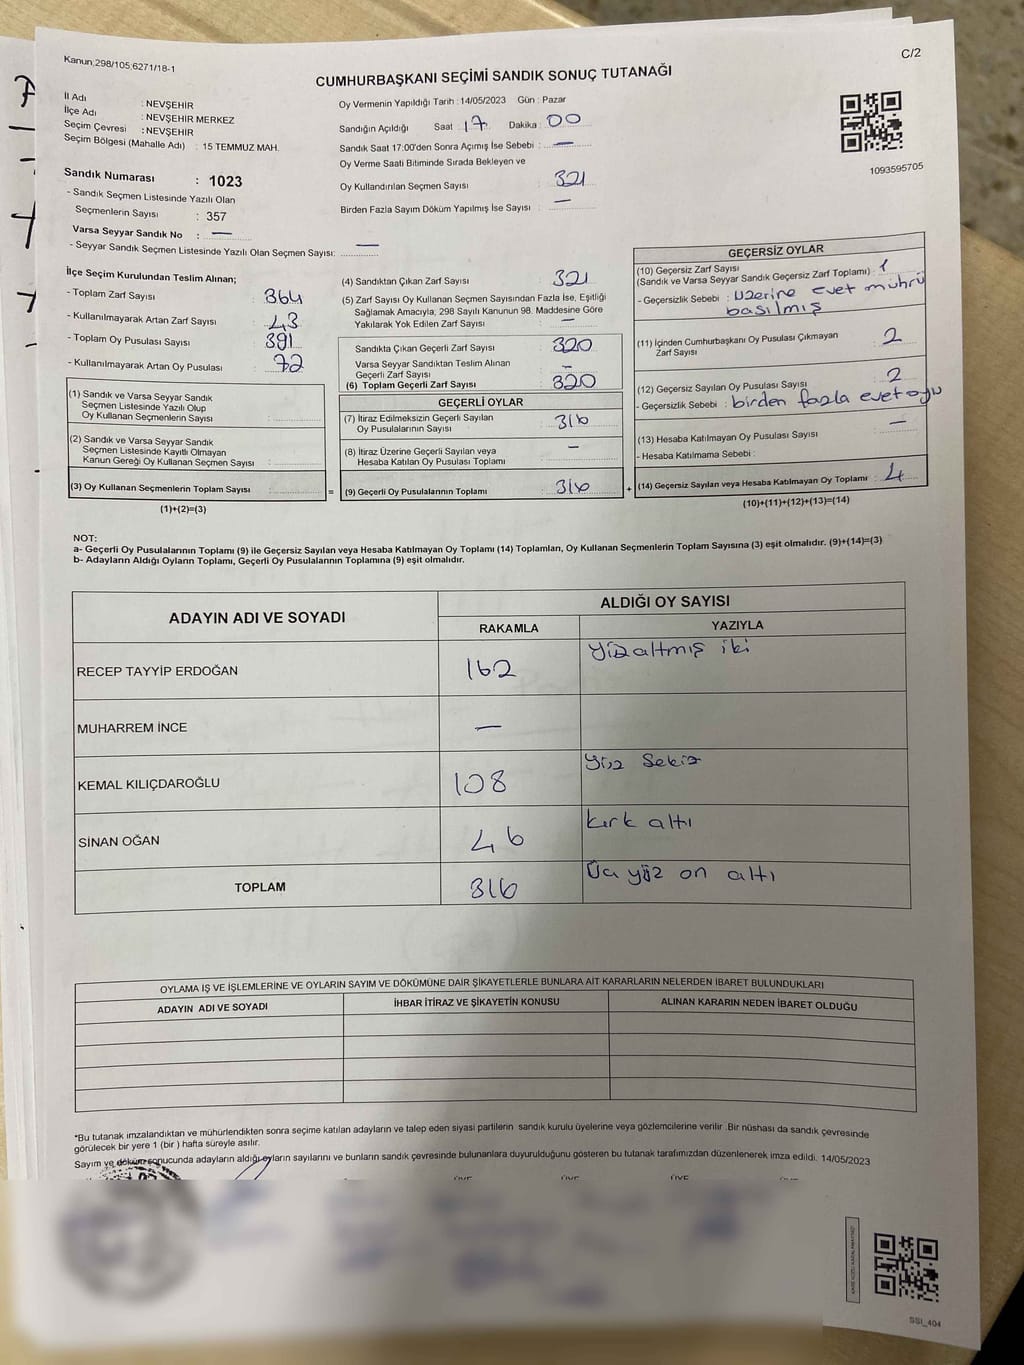 Kanun;298/105;6271/18-1
C/2
CUMHURBAŞKANI SEÇİMİ SANDIK SONUÇ TUTANAĞI
İl Adı : NEVŞEHİR
İlçe Adı : NEVŞEHİR MERKEZ
Seçim Çevresi : NEVŞEHİR
Seçim Bölgesi (Mahalle Adı) : 15 TEMMUZ MAH.
Sandık Numarası : 1023
- Sandık Seçmen Listesinde Yazılı Olan
Seçmenlerin Sayısı : 357
Varsa Seyyar Sandık No : —
- Seyyar Sandık Seçmen Listesinde Yazılı Olan Seçmen Sayısı: —
Oy Vermenin Yapıldığı Tarih : 14/05/2023 Gün : Pazar
Sandığın Açıldığı Saat : 17 Dakika : 00
Sandık Saat 17:00'den Sonra Açımış İse Sebebi : —
Oy Verme Saati Bitiminde Sırada Bekleyen ve
Oy Kullandırılan Seçmen Sayısı : 321
Birden Fazla Sayım Döküm Yapılmış İse Sayısı : —
1093595705
İlçe Seçim Kurulundan Teslim Alınan;
- Toplam Zarf Sayısı : 364
- Kullanılmayarak Artan Zarf Sayısı : 43
- Toplam Oy Pusulası Sayısı : 391
- Kullanılmayarak Artan Oy Pusulası : 72
(1) Sandık ve Varsa Seyyar Sandık
Seçmen Listesinde Yazılı Olup
Oy Kullanan Seçmenlerin Sayısı :
(2) Sandık ve Varsa Seyyar Sandık
Seçmen Listesinde Kayıtlı Olmayan
Kanun Gereği Oy Kullanan Seçmen Sayısı :
(3) Oy Kullanan Seçmenlerin Toplam Sayısı : =
(1)+(2)=(3)
(4) Sandıktan Çıkan Zarf Sayısı : 321
(5) Zarf Sayısı Oy Kullanan Seçmen Sayısından Fazla İse, Eşitliği
Sağlamak Amacıyla, 298 Sayılı Kanunun 98. Maddesine Göre
Yakılarak Yok Edilen Zarf Sayısı : —
Sandıkta Çıkan Geçerli Zarf Sayısı : 320
Varsa Seyyar Sandıktan Teslim Alınan
Geçerli Zarf Sayısı : —
(6) Toplam Geçerli Zarf Sayısı : 320
GEÇERLİ OYLAR
(7) İtiraz Edilmeksizin Geçerli Sayılan
Oy Pusulalarının Sayısı : 316
(8) İtiraz Üzerine Geçerli Sayılan veya
Hesaba Katılan Oy Pusulası Toplamı : —
(9) Geçerli Oy Pusulalarının Toplamı : 316 +
GEÇERSİZ OYLAR
(10) Geçersiz Zarf Sayısı
(Sandık ve Varsa Seyyar Sandık Geçersiz Zarf Toplamı) : 1
- Geçersizlik Sebebi : üzerine evet mührü
basılmış
(11) İçinden Cumhurbaşkanı Oy Pusulası Çıkmayan
Zarf Sayısı : 2
(12) Geçersiz Sayılan Oy Pusulası Sayısı : 2
- Geçersizlik Sebebi : birden fazla evet oyu
(13) Hesaba Katılmayan Oy Pusulası Sayısı : —
- Hesaba Katılmama Sebebi :
(14) Geçersiz Sayılan veya Hesaba Katılmayan Oy Toplamı : 4
(10)+(11)+(12)+(13)=(14)
NOT:
a- Geçerli Oy Pusulalarının Toplamı (9) ile Geçersiz Sayılan veya Hesaba Katılmayan Oy Toplamı (14) Toplamları, Oy Kullanan Seçmenlerin Toplam Sayısına (3) eşit olmalıdır. (9)+(14)=(3)
b- Adayların Aldığı Oyların Toplamı, Geçerli Oy Pusulalarının Toplamına (9) eşit olmalıdır.
ADAYIN ADI VE SOYADI
ALDIĞI OY SAYISI
RAKAMLA YAZIYLA
RECEP TAYYİP ERDOĞAN 162 yüzaltmış iki
MUHARREM İNCE —
KEMAL KILIÇDAROĞLU 108 yüz sekiz
SİNAN OĞAN 46 kırk altı
TOPLAM 316 Üç yüz on altı
OYLAMA İŞ VE İŞLEMLERİNE VE OYLARIN SAYIM VE DÖKÜMÜNE DAİR ŞİKAYETLERLE BUNLARA AİT KARARLARIN NELERDEN İBARET BULUNDUKLARI
ADAYIN ADI VE SOYADI İHBAR İTİRAZ VE ŞİKAYETİN KONUSU ALINAN KARARIN NEDEN İBARET OLDUĞU
*Bu tutanak imzalandıktan ve mühürlendikten sonra seçime katılan adayların ve talep eden siyasi partilerin sandık kurulu üyelerine veya gözlemcilerine verilir .Bir nüshası da sandık çevresinde
görülecek bir yere 1 (bir ) hafta süreyle asılır.
Sayım ve döküm sonucunda adayların aldığı oyların sayılarını ve bunların sandık çevresinde bulunanlara duyurulduğunu gösteren bu tutanak tarafımızdan düzenlenerek imza edildi. 14/05/2023
SSI_404